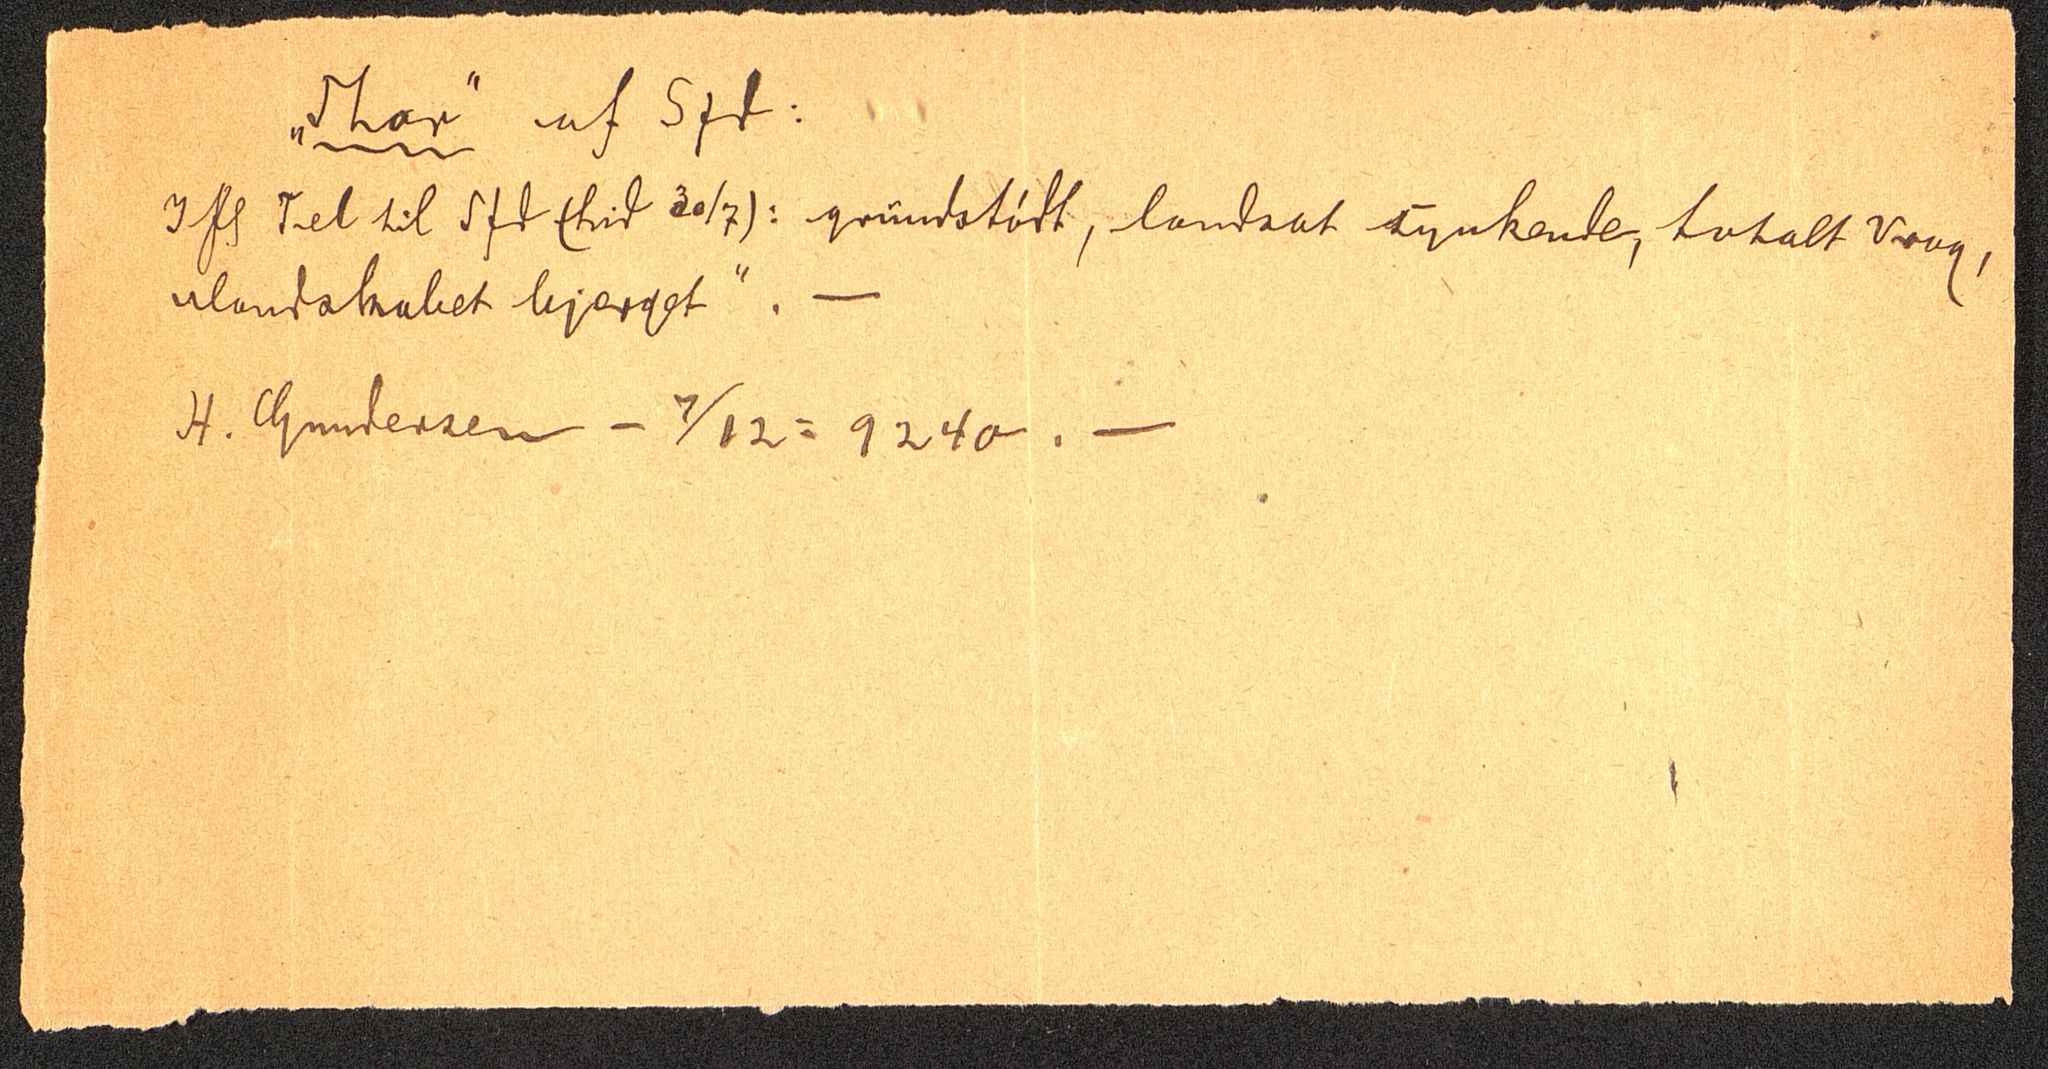 „Thor" af Sfd:
Ifg Tel til Sfd (hid 30/7): grundstødt, landsat synkende, totalt Vrag,
Mandskabet bjerget". —
H. Gundersen – 7/12 = 9240. —